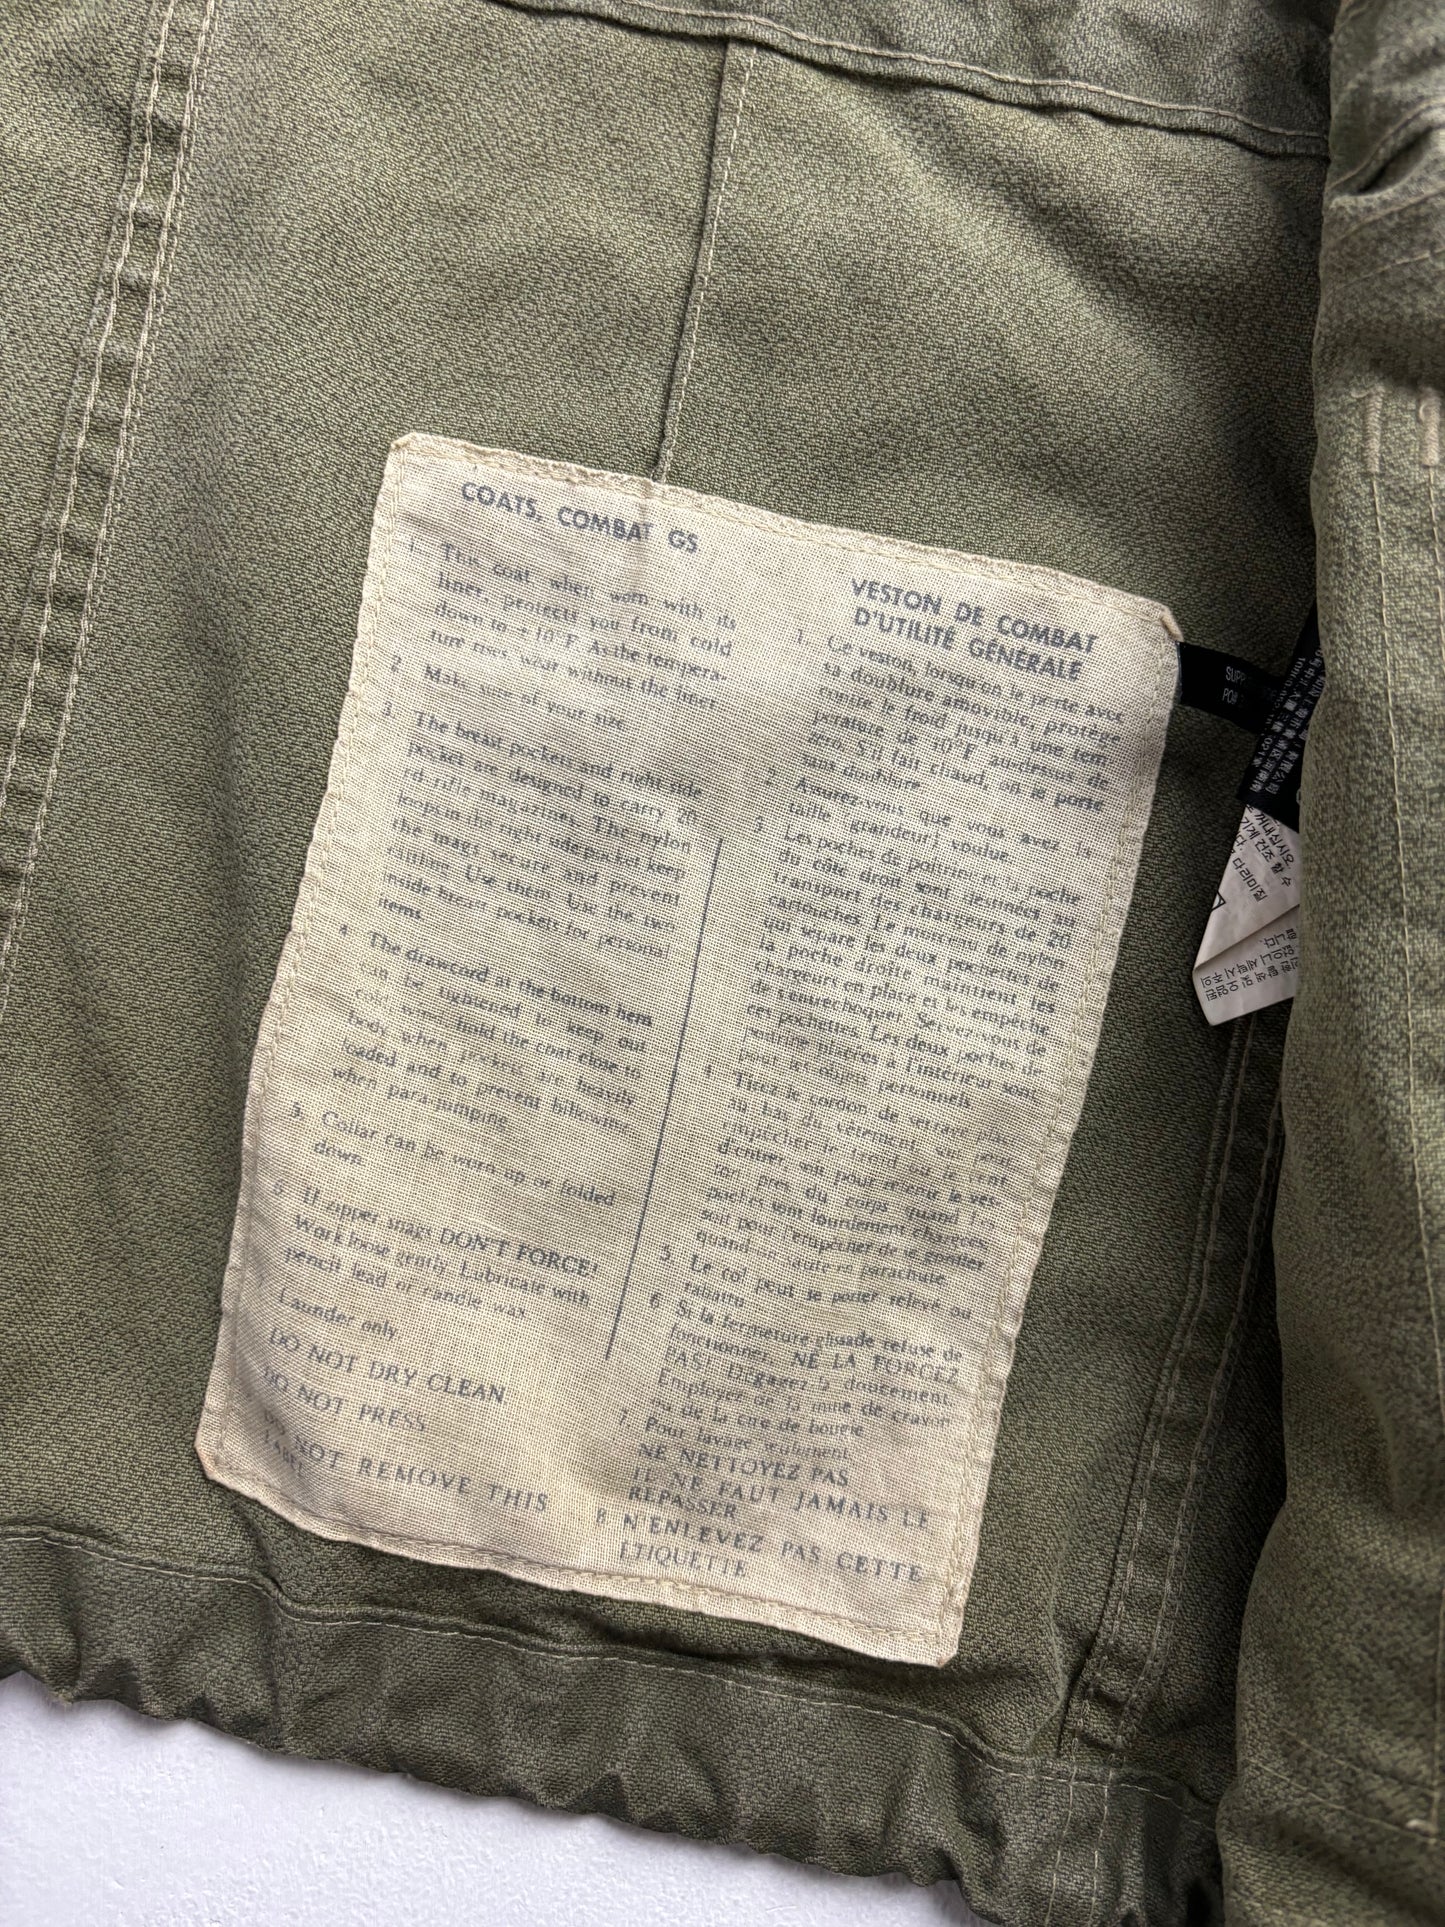 COATS, COMBAT GS
1. This coat, when worn with its
liner, protects you from cold
down to +10°F. As the tempera-
ture rises, wear without the liner.
2. Make sure of your size.
3. The breast pockets and right side
pocket are designed to carry 20
rd. rifle magazines. The nylon
loops in the right pocket keep
the mags secure and prevent
Use them. Use the two
inside breast pockets for personal
items.
4. The drawcord at the bottom hem
can be tightened to keep out
cold, will hold the coat close to
body when pockets are heavily
loaded and to prevent billowing
when para-jumping.
5. Collar can be worn up or folded
down.
6. If zipper snags DON'T FORCE!
Work loose gently. Lubricate with
pencil lead or candle wax.
7. Launder only.
DO NOT DRY CLEAN
DO NOT PRESS
DO NOT REMOVE THIS
LABEL
VESTON DE COMBAT
D'UTILITÉ GÉNÉRALE
1. Ce veston, lorsqu'on le porte avec
sa doublure amovible, protège
contre le froid jusqu'à une tem
pérature de 10°F au-dessus de
zéro. S'il fait chaud, on le porte
sans doublure.
2. Assurez-vous que vous avez la
taille (grandeur) voulue.
3. Les poches de poitrine et la poche
du côté droit sont destinées au
transport des chargeurs de 20
cartouches. Le morceau de nylon
qui sépare les deux pochettes de
la poche droite maintient les
chargeurs en place et les empêche
de s'entrechoquer. Servez-vous de
ces pochettes. Les deux poches de
poitrine placées à l'intérieur sont
pour les objets personnels.
4. Tirez le cordon de serrage placé
au bas du vêtement, soit pour
empêcher le froid ou le vent
d'entrer, soit pour retenir le ves-
ton près du corps quand les
poches sont lourdement chargées,
soit pour l'empêcher de se gonfler
quand on saute en parachute.
5. Le col peut se porter relevé ou
rabattu.
6. Si la fermeture glissade refuse de
fonctionner, NE LA FORCEZ
PAS! Dégagez-la doucement.
Employer de la mine de crayon
ou de la cire de bougie
7. Pour lavage seulement.
NE NETTOYEZ PAS
IL NE FAUT JAMAIS LE
REPASSER
8. N'ENLEVEZ PAS CETTE
ÉTIQUETTE